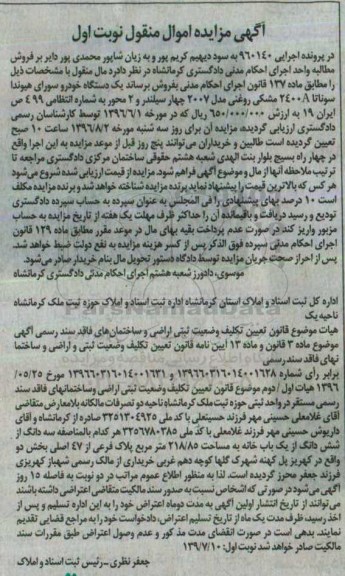 آگهی مزایده اموال منقول نوبت اول
در پرونده اجرایی ۹۶۰۱۴۰ به سود دیهیم کریم پور و به زیان شاپور محمدی پور دایر بر فروش
مطالبه واحد اجرای احکام مدنی دادگستری کرمانشاه در نظر دارد مال منقول با مشخصات ذیل
را مطابق ماده ۱۳۷ قانون اجرای احکام مدنی بفروش برساند یک دستگاه خودرو سورای هیوندا
سوناتا ۲۴۰۰۸ مشکی روغنی مدل ۲۰۰۷ چهار سیلندر و ۲ محور به شماره انتظامی ۴۹۹ ص
ایران ۱۹ به ارزش ۶۵۰/۰۰۰/۰۰۰ ریال که در مورخه ۱۳۹۶/۶/۱ توسط کارشناسان رسمی
دادگستری ارزیابی گردیده، مزایده آن برای روز سه شنبه مورخه ۱۳۹۶/۸/۲ ساعت ۱۰ صبح
تعیین گردیده است طالبین و خریداران می توانند پنج روز قبل از موعد مزایده به این اجرا واقع
در چهار راه بسیج بلوار بنت الهدی شعبه هشتم حقوقی ساختمان مرکزی دادگستری مراجعه تا
ترتیب ملاحظه آنها از مال و موضوع آگهی فراهم شود. مزایده از قیمت ارزیابی شده شروع می شود
هر کس که بالاترین قیمت را پیشنهاد نماید برنده مزایده شناخته خواهد شد و برنده مزایده مکلف
است ۱۰ درصد بهای پیشنهادی را فی المجلس به عنوان سپرده به حساب سپرده دادگستری
تودیع و رسید دریافت و باقیمانده آن را حداکثر ظرف مهلت یک هفته از تاریخ مزایده به حساب
مزبور واریز کند در صورت عدم پرداخت بقیه بهای مال در موعد مقرر مطابق ماده ۱۲۹ قانون
اجرای احکام مدنی سپرده فوق الذکر پس از کسر هزینه مزایده به نفع دولت ضبط خواهد شد.
پس از احراز صحت جریان مزایده توسط دادگاه دستور تحویل مال بنام خریدار صادر می شود.
موسوی، دادورز شعبه هشتم اجرای احکام مدنی دادگستری کرمانشاه
اداره کل ثبت اسناد و املاک استان کرمانشاه اداره ثبت اسناد و املاک حوزه ثبت ملک کرمانشاه
ناحیه یک
هیات موضوع قانون تعیین تکلیف وضعیت ثبتی اراضی و ساختمان‌های فاقد سند رسمی آگهی
موضوع ماده ۳ قانون و ماده ۱۳ آیین نامه قانون تعیین تکلیف وضعیت ثبتی و اراضی و ساختما
نهای فاقد سند رسمی
برابر رای شماره ۱۳۹۶۶۰۳۱۶۰۱۴۰۰۱۶۲۸ و ۱۳۹۶۶۰۳۱۶۰۱۴۰۰۱۶۳۱ مورخ ۰۵/۲۵/
۱۳۹۶ هیات اول / دوم موضوع قانون تعیین تکلیف وضعیت ثبتی اراضی وساختمانهای فاقد سند
رسمی مستقر در واحد ثبتی حوزه ثبت ملک کرمانشاه ناحیه دو تصرفات مالکانه بلامعارض متقاضی
آقای غلامعلی حسینی مهر فرزند حسینعلی با کد ملی ۳۲۵۱۳۰۴۹۲۵ صادره از کرمانشاه و آقای
داریوش حسینی مهر فرزند غلامعلی با کد ملی ۳۲۵۶۷۸۰۳۸۵ هر کدام بالمناصفه سه دانگ از
شش دانگ از یک باب خانه به مساحت ۲۱۸/۸۵ متر مربع پلاک فرعی از ۴۷ اصلی بخش دو
واقع در کهریز پل کهنه شهرک گلها کوچه دهم غربی خریداری از مالک رسمی شهباز کهریزی
فرزند جعفر محرز گردیده است. لذا به منظور اطلاع عموم مراتب در دو نوبت به فاصله ۱۵ روز
آگهی می شود در صورتی که اشخاص نسبت به صدور سند مالکیت متقاضی اعتراضی داشته باشند
می توانند از تاریخ انتشار اولین آگهی به مدت دوماه اعتراض خود را به این اداره تسلیم و پس از
اخذ رسید، ظرف مدت یک ماه از تاریخ تسلیم اعتراض، دادخواست خود را به مراجع قضایی تقدیم
نمایند. بدیهی است در صورت انقضای مدت مذ کور و عدم وصول اعتراض طبق مقررات سند
مالکیت صادر خواهد شد نوبت اول: ۱۳۹/۷/۱۰
جعفر نظری - رئیس ثبت اسناد و املاک